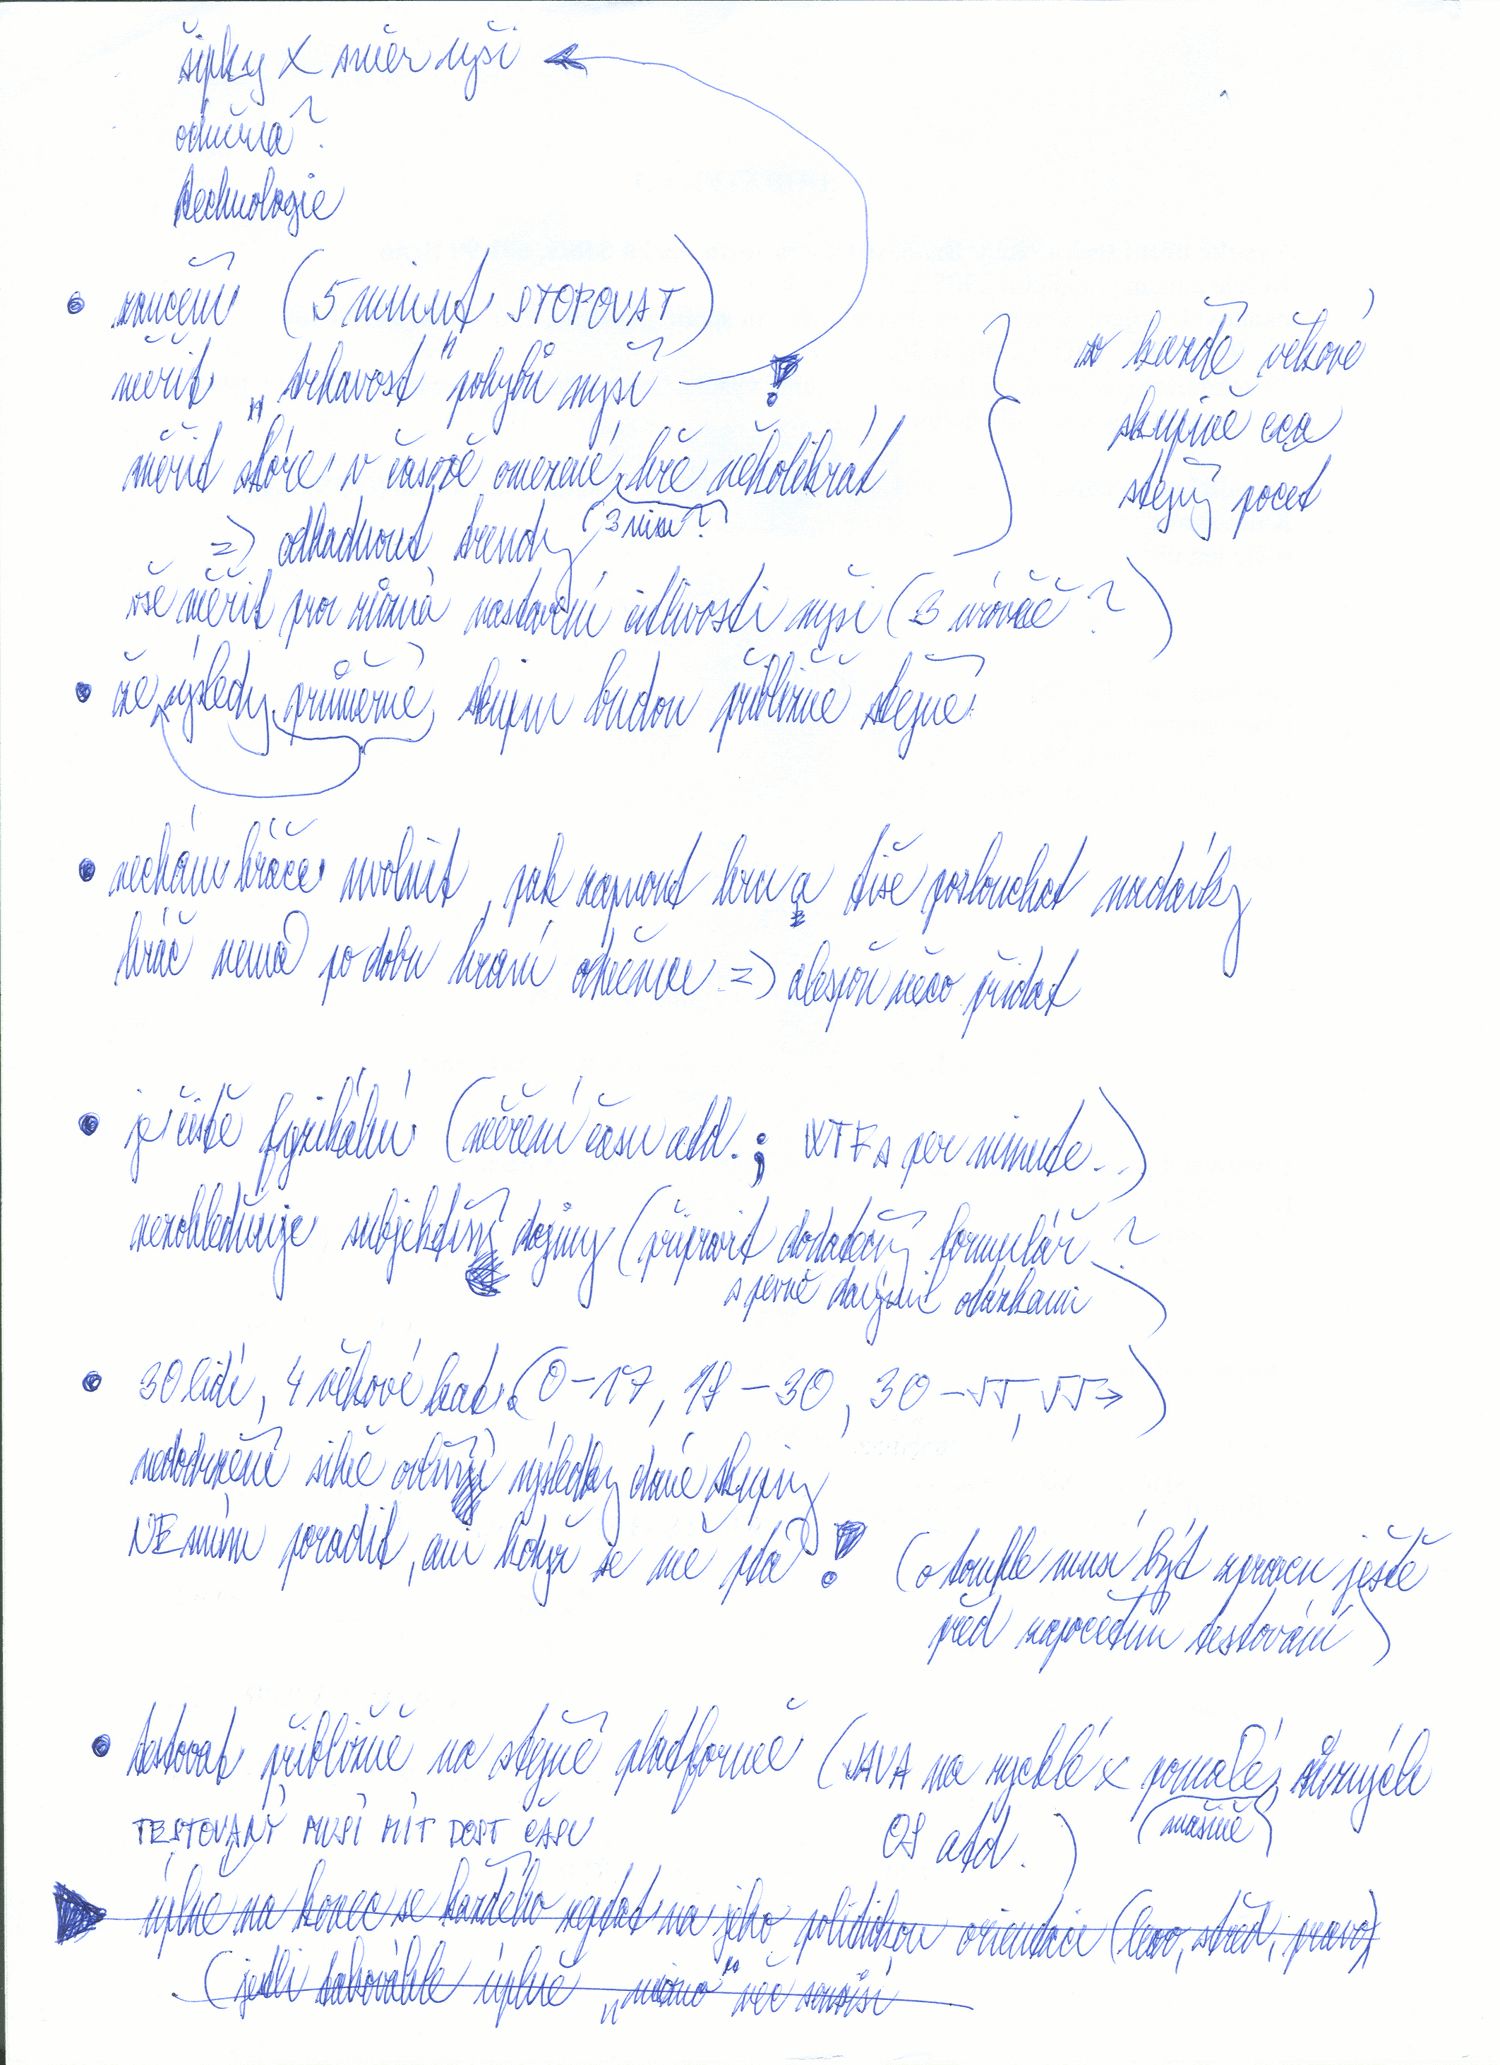 šipky x směr myši
odměna?
technologie
• zaučení (5 minut STOPOVAT)
měřit "trhavost" pohybů myší !
měřit skóre v časově omezené hře několikrát
(3 min?)
=> odhadnout trendy
v každé věkové
skupině cca
stejný počet
vše měřit pro různá nastavení citlivosti myši (3 úrovně?)
• že výsledy průměrné skupin budou přibližně stejné
• nechám hráče uvolnit, pak zapnout hru a tiše poslouchat nadávky
hráč nemá po dobu hraní => alespoň něco přidat
• je čistě fyzikální (měření času atd.; WTFs per minute..)
nezohledňuje subjektivní dojmy (připravit dodatečný formulář?
s pevně danými otázkami)
• 30 lidí, 4 věkové kat. (0-17, 18-30, 30-55, 55→)
nedodržení silně ovlivní výsledky dané skupiny
NEsmím poradit, ani když se mě ptá! (o tomhle musí být zpraven ještě
před započetím testování)
• testovat přibližně na stejné platformě (JAVA na rychlé x pomalé, různých
(mašině)
OS atd.)
TESTOVANÝ MUSÍ MÍT DOST ČASU
úplně na konec se každého zeptat na jeho politickou orientaci (levo, střed, pravo)
(jestli takováhle úplně "mimo" věc souvisí